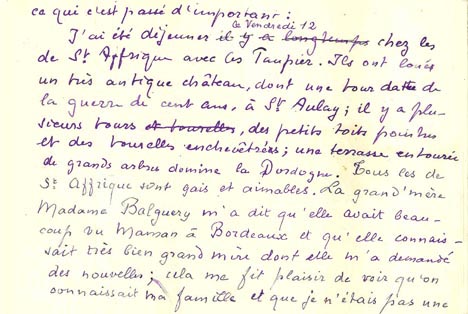 ce qui c'est passé d'important :
le Vendredi 12
J'ai été déjeuner il y a longtemps chez les
de St Affrique avec les Taupier. Ils ont loués
un très antique château, dont une tour datte de
la guerre de cent ans, à St Aulay ; il y a plu-
sieurs tours et tourelles, des petits toits pointus
et des tourelles enchevêtrées ; une terrasse entourée
de grands arbres domine la Dordogne. Tous les de
St Affrique sont gais et aimables. La grand'mère
Madame Balguery m'a dit qu'elle avait beau-
coup vu Maman à Bordeaux et qu'elle connais-
sait très bien grand mère dont elle m'a demandé
des nouvelles ; cela me fit plaisir de voir qu'on
connaissait ma famille et que je n'étais pas une